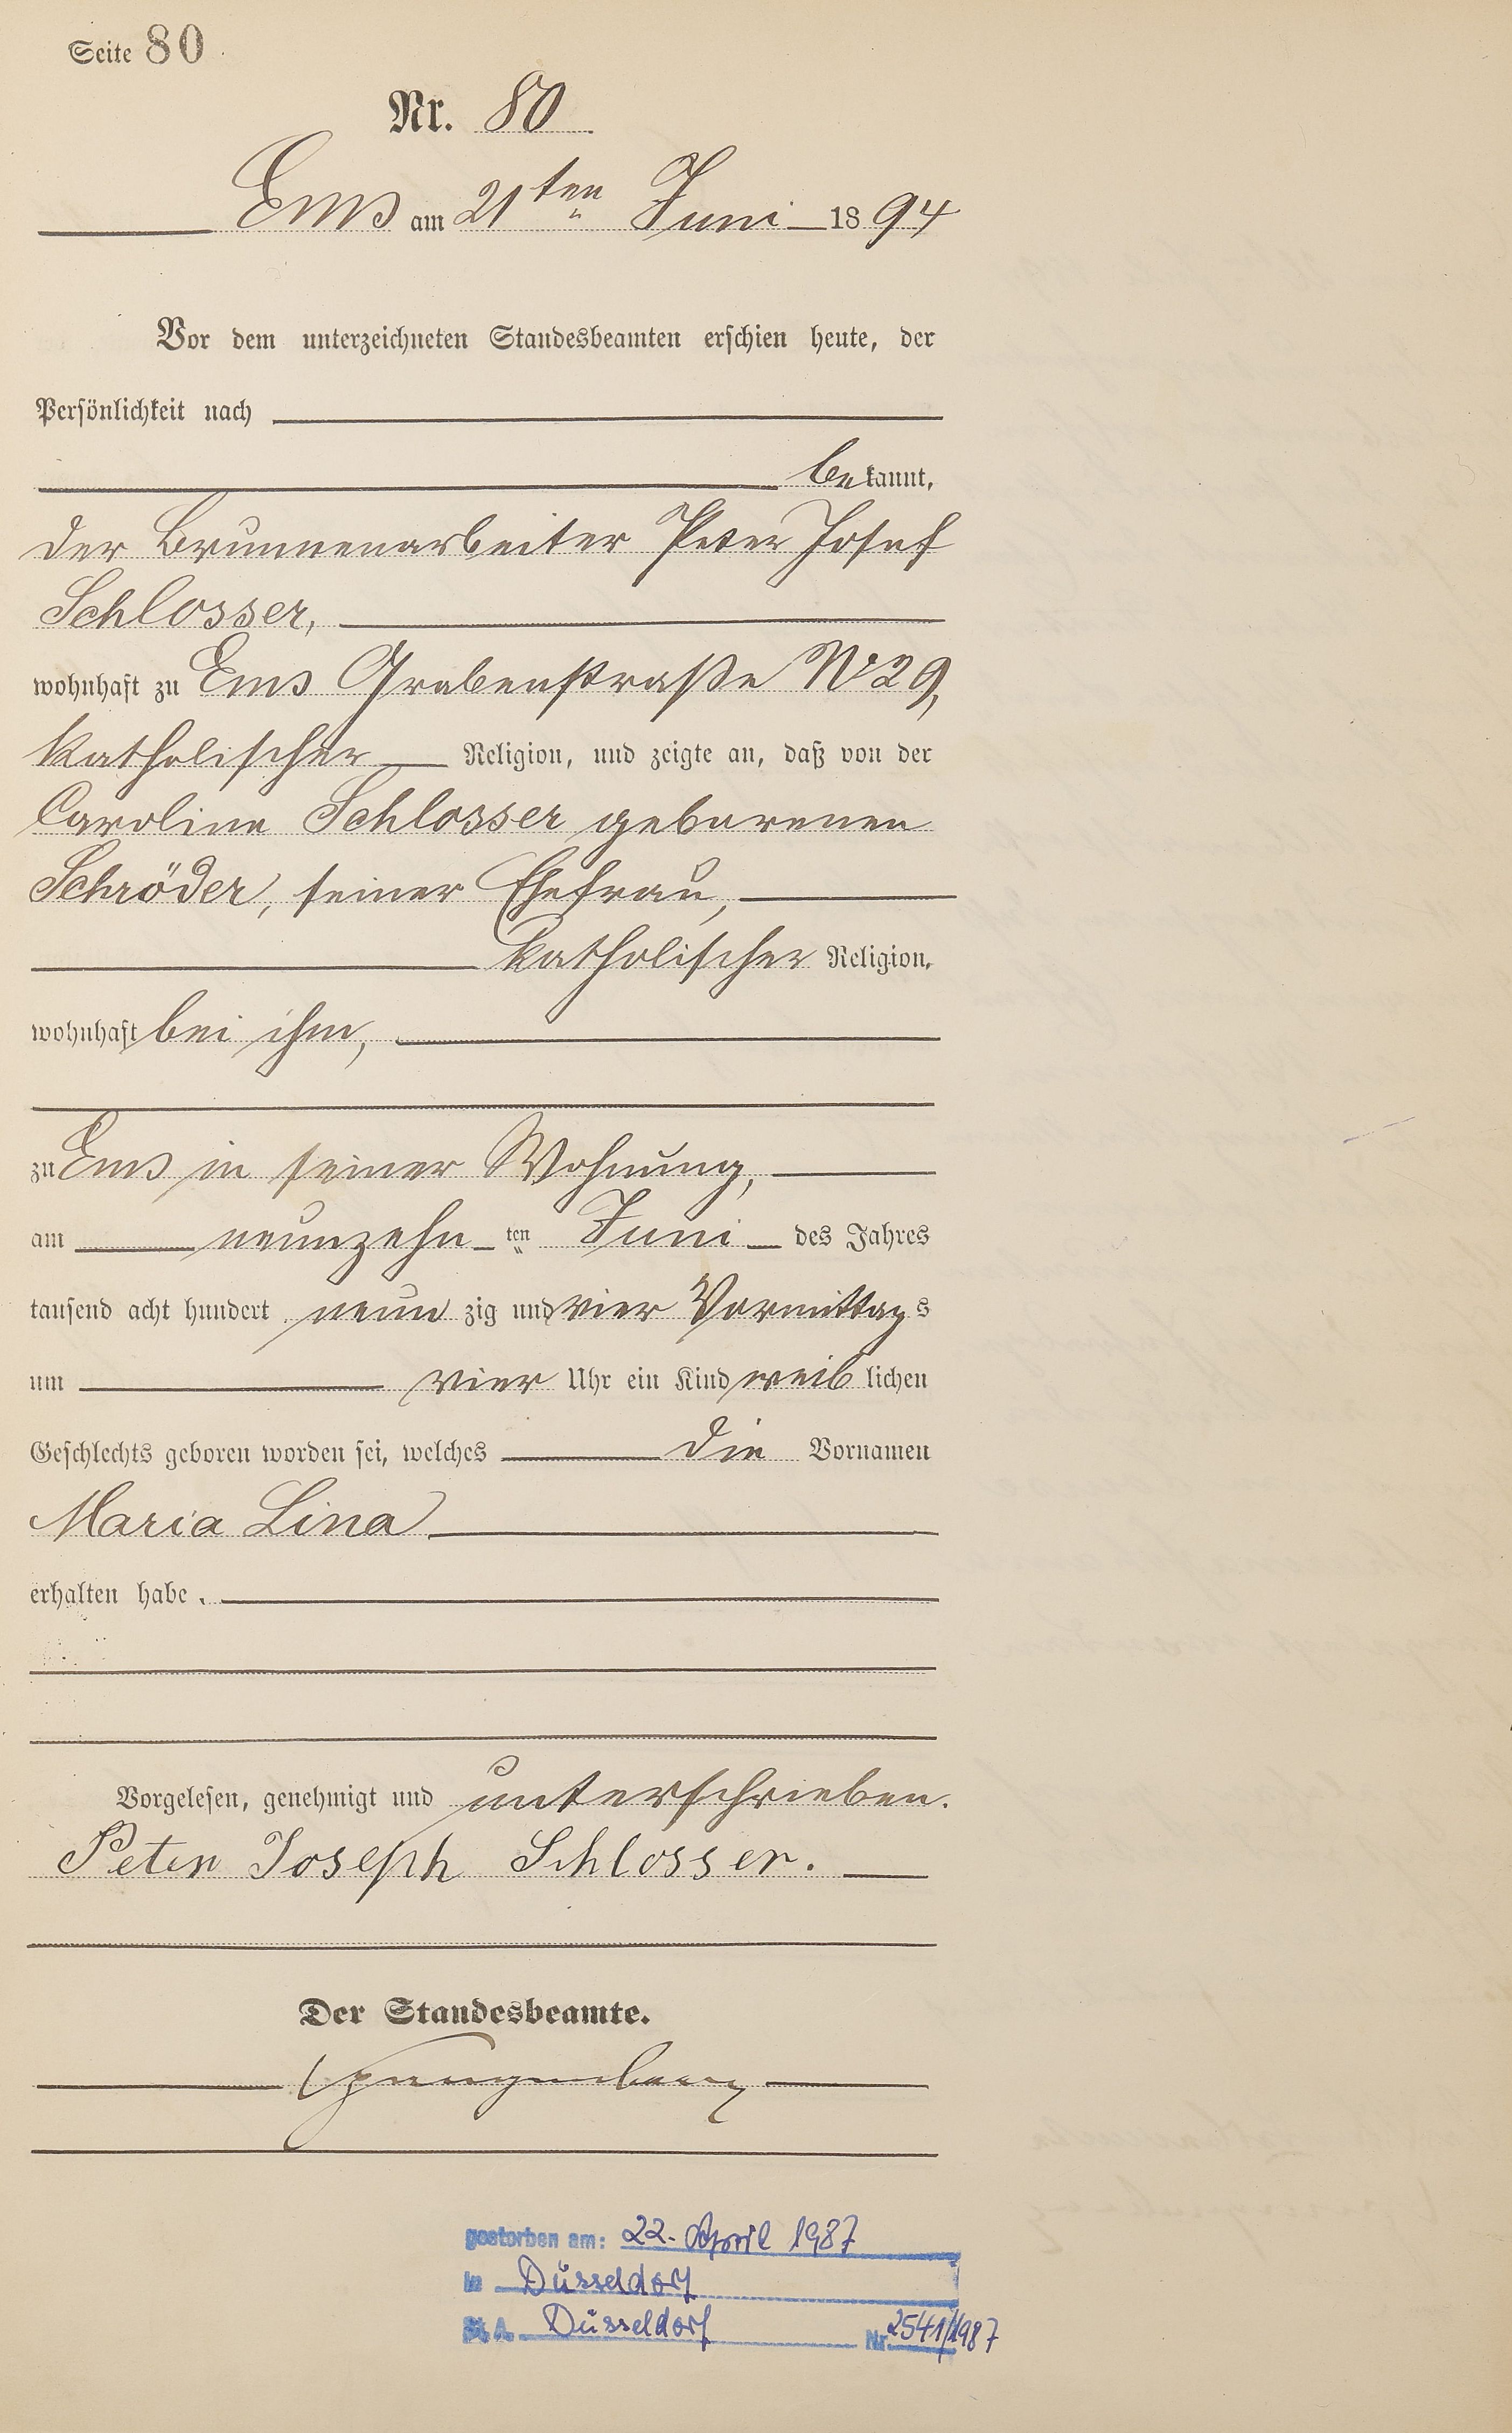 Seite 80
Nr. 80
Ems am 21ten Juni 1894
Vor dem unterzeichneten Standesbeamten erschien heute, der
Persönlichkeit nach
bekannt,
der Brunnenarbeiter Peter Josef
Schlosser,
wohnhaft zu Ems Grabenstraße No 29,
katholischer Religion, und zeigte an, daß von der
Caroline Schlosser geborenen
Schröder, seiner Ehefrau,
katholischer Religion,
wohnhaft bei ihm,
zu Ems in seiner Wohnung,
am neunzehn ten Juni des Jahres
tausend acht hundert neun zig und vier Vormittags
um vier Uhr ein Kind weib lichen
Geschlechts geboren worden sei, welches die Vornamen
Maria Lina
erhalten habe.
Vorgelesen, genehmigt und unterschrieben.
Peter Joseph Schlosser.
Der Standesbeamte.
gestorben am: 22. April 1987
in Düsseldorf
St. A. Düsseldorf Nr. 2541/1987